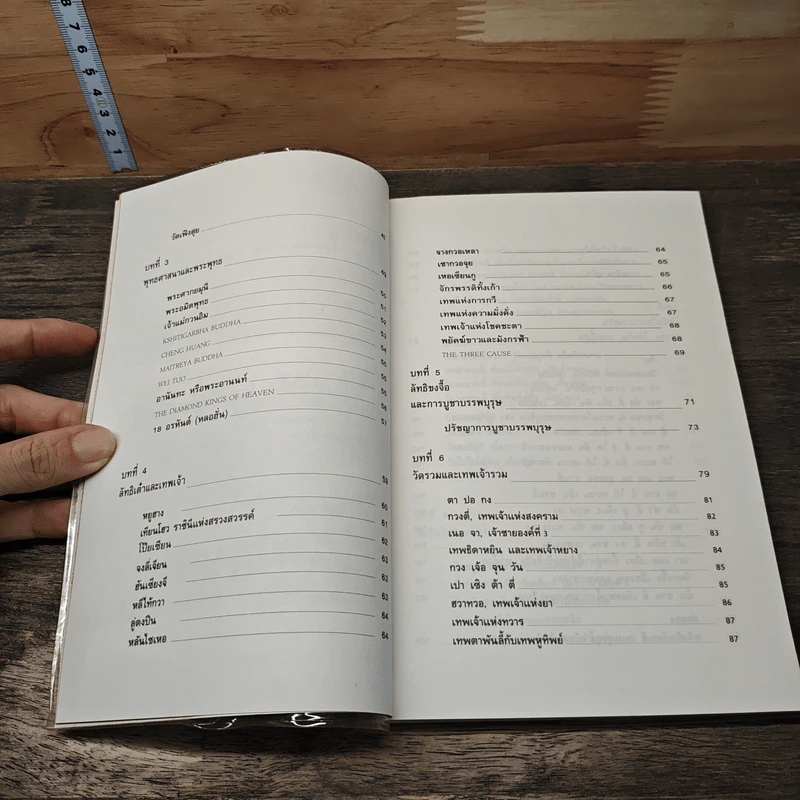 8 7 6 5 4 3 2 1
วัดเพิงสุย 41
บทที่ 3
พุทธศาสนาและพระพุทธ 49
พระศากยมุนี 50
พระอมิตพุทธ 51
เจ้าแม่กวนอิม 52
KSHITIGARBHA BUDDHA 53
CHENG HUANG 54
MAITREYA BUDDHA 55
WEI TUO 55
อานันทะ หรือพระอานนท์ 55
THE DIAMOND KINGS OF HEAVEN 56
18 อรหันต์ (หลอฮั่น) 57
บทที่ 4
ลัทธิเต๋าและเทพเจ้า 59
หยูฮาง 60
เทียนโฮว ราชินีแห่งสรวงสวรรค์ 61
โป๊ยเซียน 62
จงลี่เจียน 63
ฮันเซียงจี 63
หลีไท้กวา 63
ลู่ตงปิน 64
หลันไชเหอ 64
จางกวอเหลา 64
เชากวอจุย 65
เหอเซียนกู 65
จักรพรรดิทั้งเก้า 66
เทพแห่งการกวี 67
เทพแห่งความมั่งคั่ง 67
เทพเจ้าแห่งโชคชะตา 68
พยัคฆ์ขาวและมังกรฟ้า 68
THE THREE CAUSE 69
บทที่ 5
ลัทธิขงจื๊อ
และการบูชาบรรพบุรุษ 71
ปรัชญาการบูชาบรรพบุรุษ 73
บทที่ 6
วัดรวมและเทพเจ้ารวม 79
ตา ปอ กง 81
กวงตี่, เทพเจ้าแห่งสงคราม 82
เนอ จา, เจ้าชายองค์ที่ 3 83
เทพธิดาหยิน และเทพเจ้าหยาง 84
กวง เจ้อ จุน วัน 85
เปา เชิง ต้า ตี่ 85
ฮวาทวอ, เทพเจ้าแห่งยา 86
เทพเจ้าแห่งทวาร 87
เทพตาพันลี้กับเทพหูทิพย์ 87